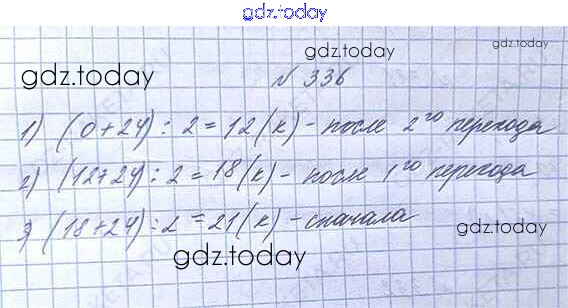 gdz.today
gdz.today
gdz.today
gdz.today
№ 336
1) (0+24) : 2 = 12 (к) - после 2го перехода
2) (12+24) : 2 = 18 (к) - после 1го перехода
3) (18+24) : 2 = 21 (к) - сначала
gdz.today
gdz.today